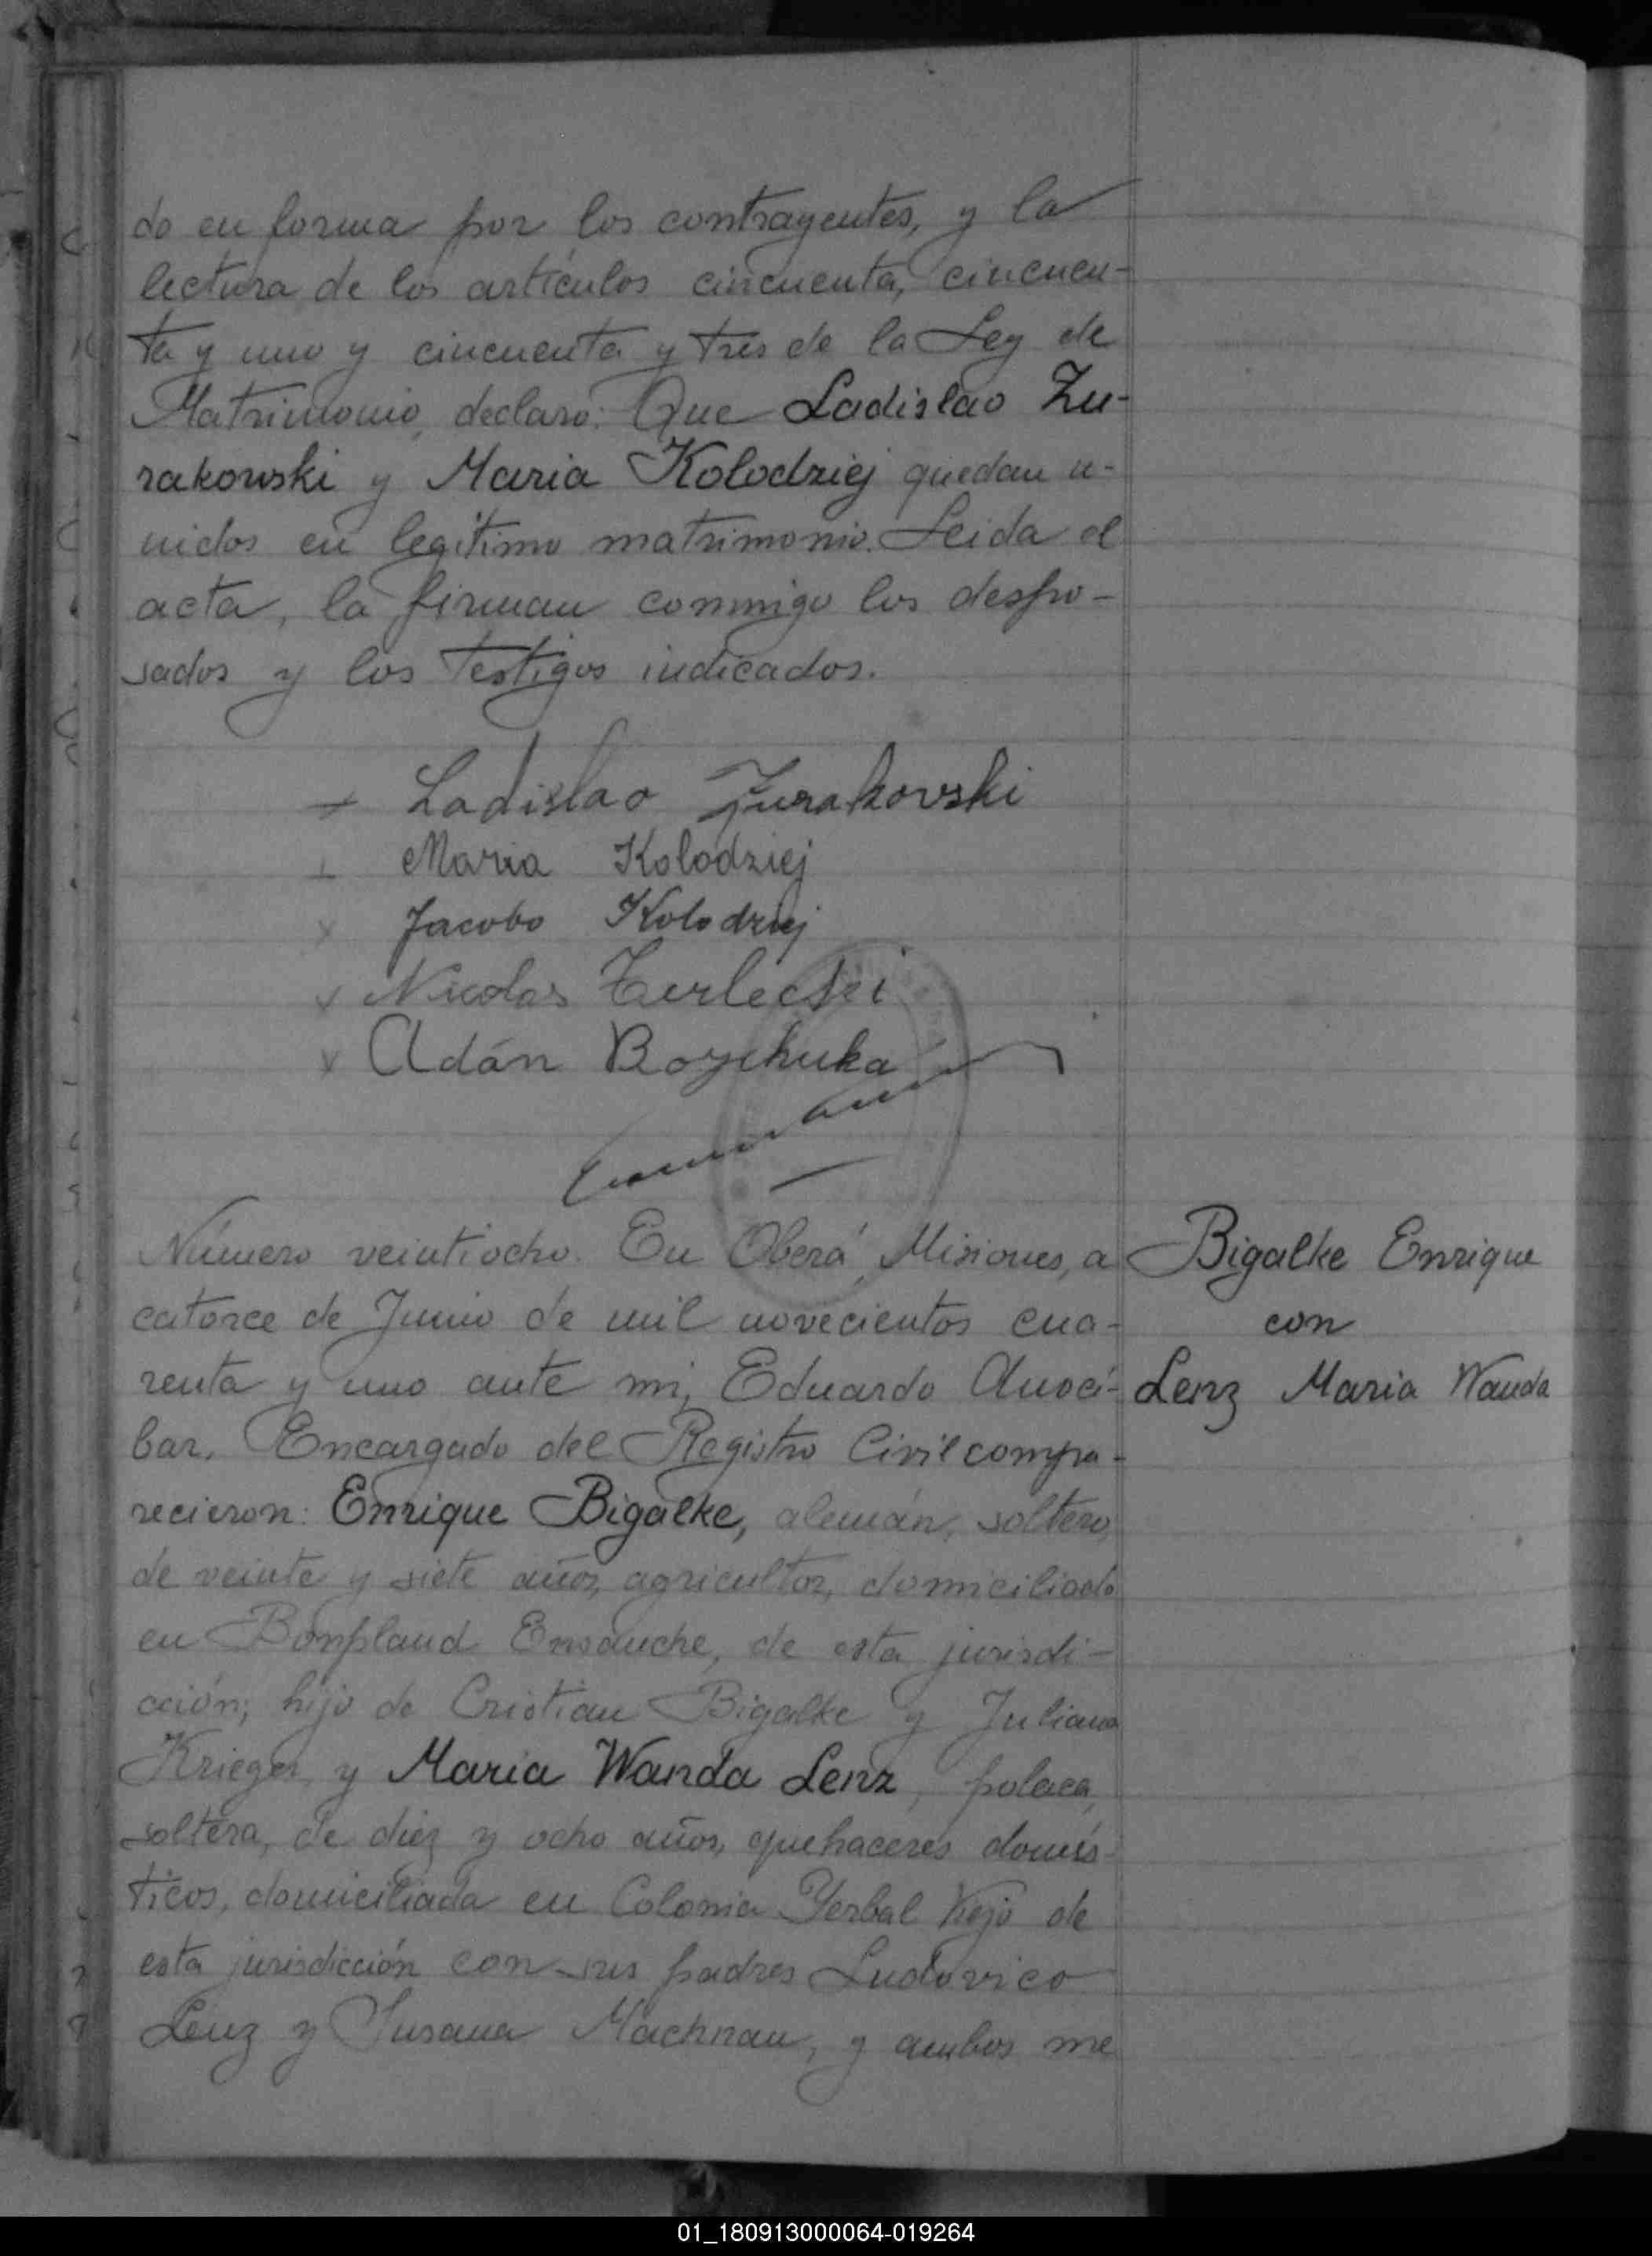 do en forma por los contrayentes, y la
lectura de los artículos cincuenta, cincuen-
ta y uno y cincuenta y tres de la Ley de
Matrimonio, declaro: Que Ladislao Zu-
rakowski y Maria Kolodziej quedan u-
nidos en legítimo matrimonio. Leida el
acta, la firman conmigo los despo-
sados y los testigos indicados.
Ladislao Zurakovski
Maria Kolodziej
Jacobo Kolodziej
Nicolas Terlecki
Adán Boychuka
Número veintiocho. En Oberá, Misiones, a
catorce de Junio de mil novecientos cua-
renta y uno ante mi, Eduardo Anocí-
bar, Encargado del Registro Civil compa-
recieron: Enrique Bigalke, alemán, soltero,
de veinte y siete años, agricultor, domiciliado
en Bonpland Ensanche, de esta jurisdi-
cción; hijo de Cristian Bigalke y Juliana
Krieger y Maria Wanda Lenz, polaca,
soltera, de diez y ocho años, quehaceres domés-
ticos, domiciliada en Colonia Yerbal Viejo de
esta jurisdicción con sus padres Ludovico
Lenz y Susana Machnau, y ambos me
Bigalke Enrique
con
Lenz Maria Wanda
01_180913000064-019264